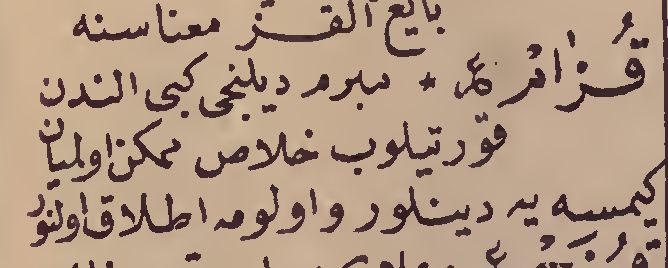 بايع القز معناسنه
قُزَامْ ع * مبرم ديلنجى كبى الندن
قورتيلوب خلاص ممكن اولميان
كيمسه يه دينلور و اولومه اطلاق اولنور